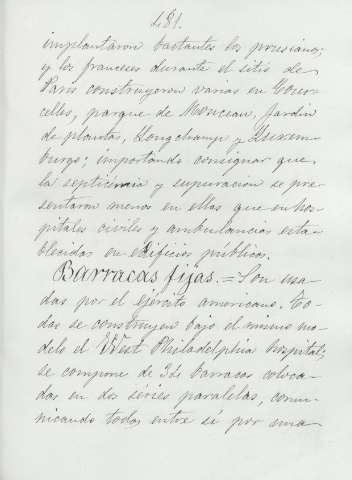 481.
implantaron bastantes los prusianos;
y los franceses durante el sitio de
Paris construyeron varias en Cour-
celles, parque de Monceau, Jardin
de plantas, Longchamp y Luxem-
burgo; importando consignar que
la septicemia y supuracion se pre-
sentaron menos en ellas que en hos-
pitales civiles y ambulancias esta-
blecidas en edificios públicos.
Barracas fijas. = Son usa-
das por el ejército americano. to-
das se construyen bajo el mismo mo-
delo el West Philadelphia hospital;
se compone de 34 barracas coloca-
das en dos séries paralelas, comu-
nicando todas entre si por una